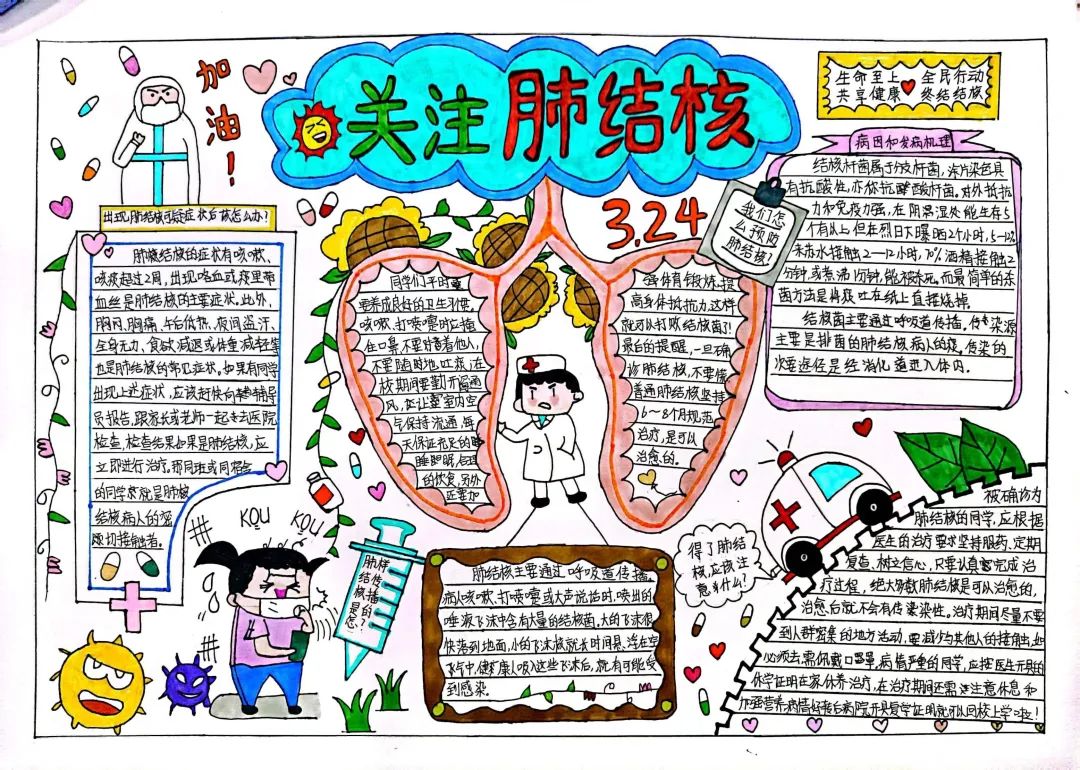 关注肺结核
3.24
加油！
生命至上 全民行动
共享健康 终结结核
出现肺结核可疑症状后该怎么办？
肺结核的症状有咳嗽、
咳痰超过2周，出现咯血或痰里带
血丝是肺结核的主要症状，此外，
胸闷、胸痛、午后低热、夜间盗汗、
全身无力、食欲减退或体重减轻等
也是肺结核的常见症状。如果有同学
出现上述症状，应该赶快向辅导
员报告，跟家长或老师一起去医院
检查，检查结果如果是肺结核，应
立即进行治疗，那同班或同宿舍
的同学就是肺
结核病人的密
切接触者。
我们怎
么预防
肺结核？
同学们平时
要养成良好的卫生习惯。
咳嗽、打喷嚏时应捂
住口鼻，不要对着他人，
不要随时地吐痰，在
校期间要勤开窗
风，让室内空
气保持流通，每
天保证充足的睡
眠，合理
的饮食，另外
还要加
强体育锻炼，提
高身体抵抗力，这样
就可以打败结核菌了！
最后的提醒，一旦确
诊肺结核，不要慌
普通肺结核坚持
6～8个月规范
治疗，是可以
治愈的。
病因和发病机理
结核杆菌属于分枝杆菌，涂片染色具
有抗酸性，亦称抗酸杆菌。对外抵抗
力和免疫力强，在阴湿处能生存5
个月以上，但在烈日下曝晒2个小时，5—12%
接触2—12小时，70%酒精接触2
分钟，或煮沸1分钟，能被杀死。而最简单的杀
菌方法是将痰吐在纸上直接烧掉。
结核菌主要通过呼吸道传播。传染源
主要是排菌的肺结核病人的痰。传染的
次要途径是经消化道进入体内。
KOU KOU
肺结核是怎样传播的？
肺结核主要通过呼吸道传播。
病人咳嗽、打喷嚏或大声说话时，喷出的
唾液飞沫中含有大量的结核菌。大的飞沫很
快落到地面，小的飞沫就长时间悬浮在空
气中，健康人吸入这些飞沫后，就有可能受
到感染。
得了肺结
核，应该注
意什么？
被确诊为
肺结核的同学，应根据
医生的治疗要求坚持服药、定期
复查，树立信心，只要认真完成治
疗过程，绝大多数肺结核是可以治愈的。
治愈后就不会有传染性。治疗期间尽量不要
到人群密集的地方活动，要减少与其他人的接触，如
必须去需佩戴口罩。病情严重的同学，应按医生开具的
休学证明在家休养治疗，在治疗期间还需注意休息和
加强营养，病情好转后病院开具复学证明就可以回校上学啦！